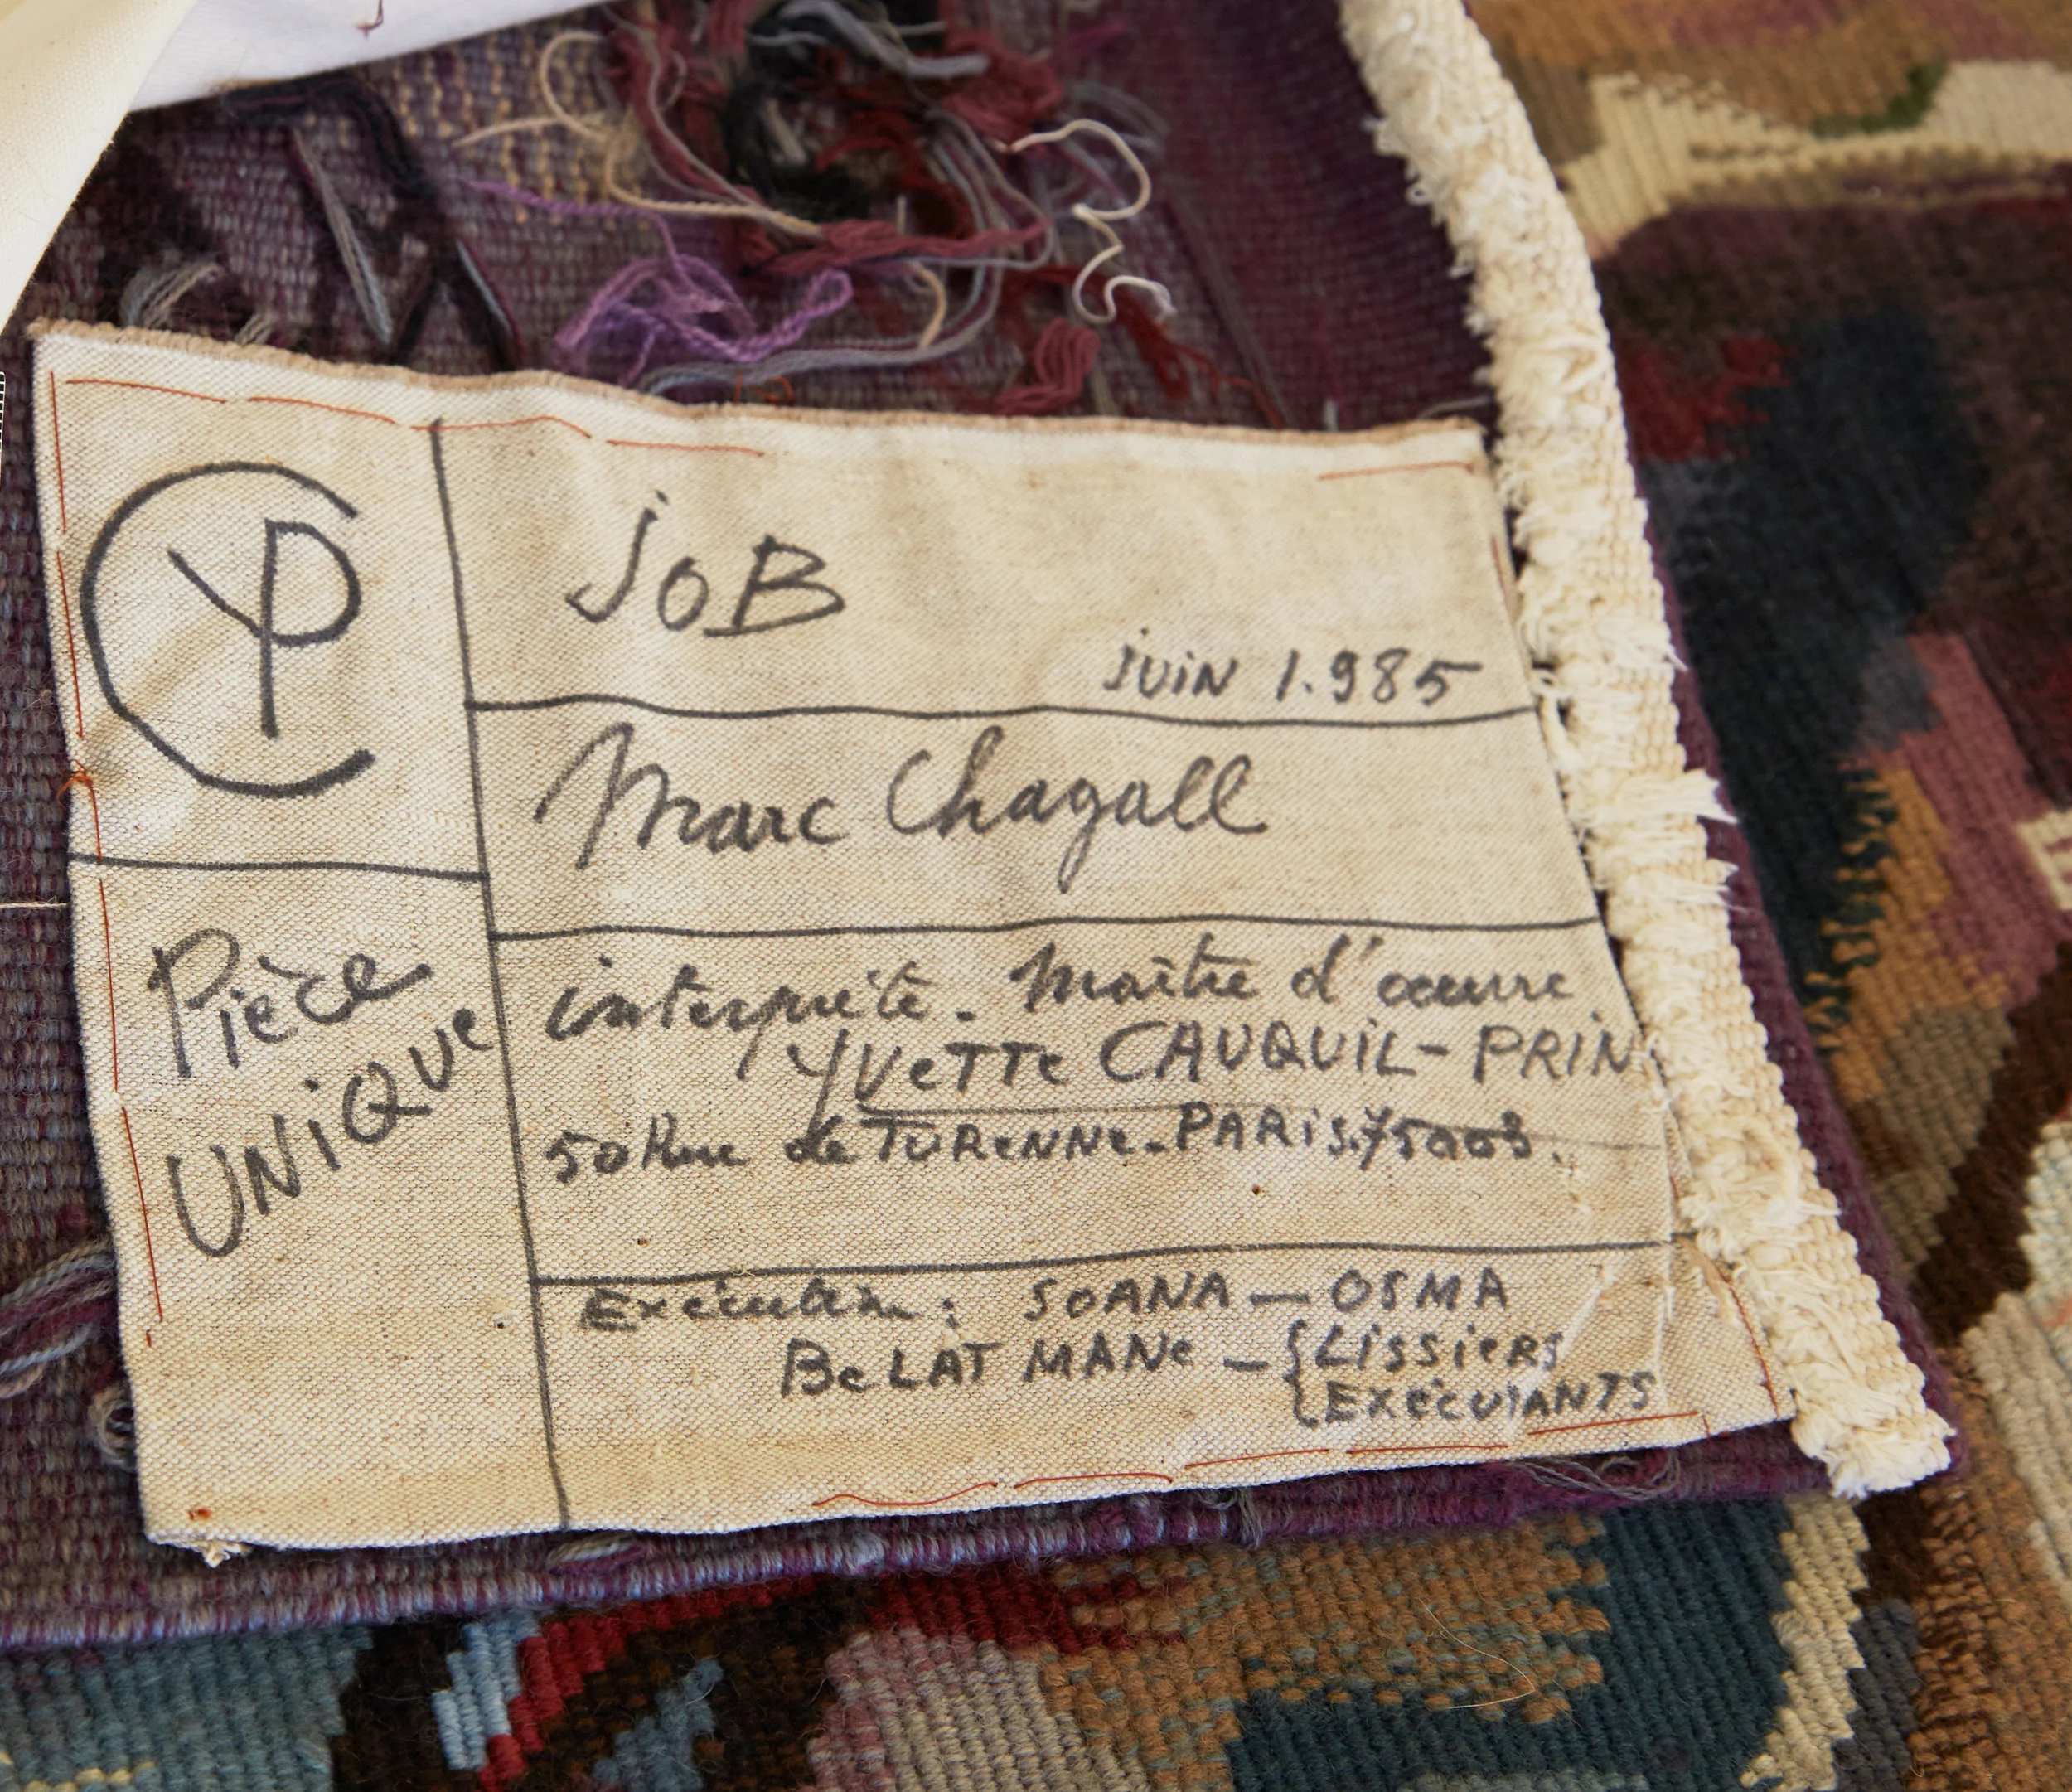 CYP
JOB
JUIN 1.985
Marc Chagall
Pièce
UNIQUE
interprète. Maître d'œuvre
YVETTE CAUQUIL-PRIN
50 Rue de TURENNE. PARIS. 75003.
Exécution: SOANA — OSMA
BELAT MANE — { LISSIERS
{ EXÉCUTANTS